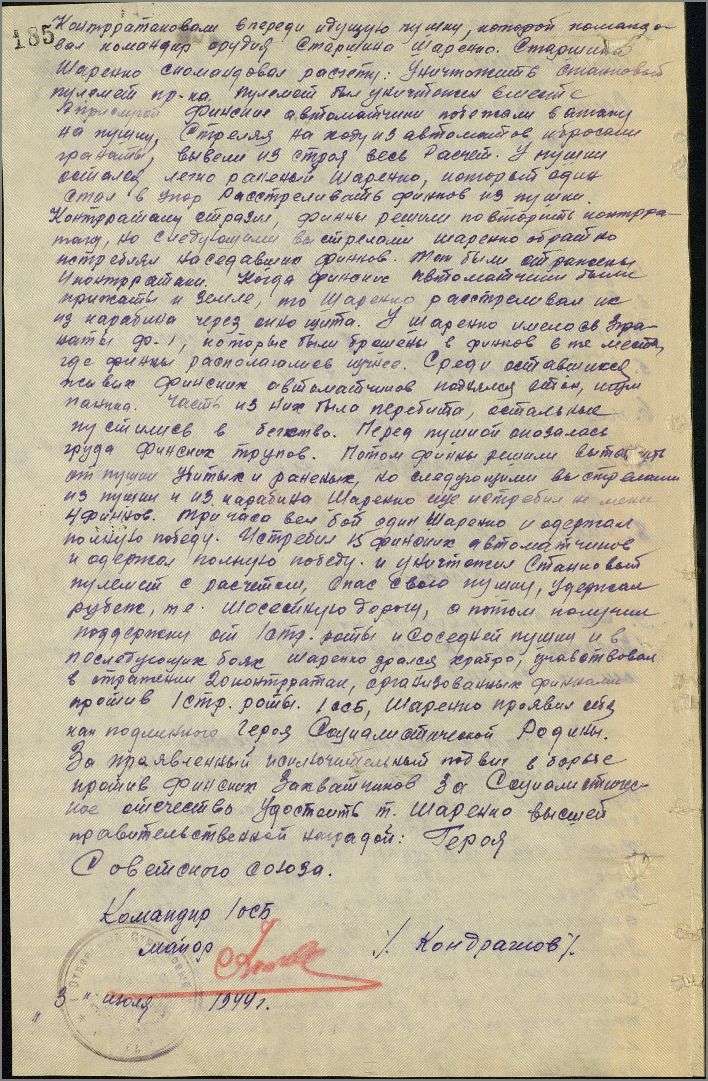 185
Контрратаковали впереди идущую пушку, которой командо-
вал командир орудия Старшина Шаренко. Старшина
Шаренко скомандовал расчету: Уничтожить станковый
пулемет пр-ка. Пулемет был уничтожен вместе
Финские автоматчики побежали в атаку
на пушку, стреляя на ходу из автоматов и бросали
гранаты, вывели из строя весь Расчет. У пушки
остался легко раненый Шаренко, который один
стал в упор Расстреливать финнов из пушки.
Контрратаку отразил, финны решили повторить контрра-
таку, но следующими выстрелами Шаренко обратно
истреблял наседавших финнов. Так были отражены
контрратаки. Когда финские автоматчики были
прижаты к земле, то Шаренко расстреливал их
из карабина через окно щита. У Шаренко имелось гра-
наты ф-1, которые были брошены в финнов в те места,
где финны располагались кучнее. Среди оставшихся
живых финских автоматчиков поднялся стон, шум
паника. Часть из них была перебита, остальные
пустились в бегство. Перед пушкой оказалась
груда финских трупов. Потом финны решили
от пушки убитых и раненых, но следующими выстрелами
из пушки и из карабина Шаренко еще истребил не мене
4 финнов. Три часа вел бой один Шаренко и одержал
полную победу. Истребил 13 финских автоматчиков
и одержал полную победу и уничтожил Станковый
пулемет с расчетом, спас свою пушку, удержал
рубеж, т.е. Шоссейную дорогу, а потом получил
поддержку от 1 стр. роты и соседней пушки и в
последующих боях Шаренко дрался храбро, учавствовал
в отражении 20 контрратак, организованных финнами
против 1 стр. роты. 1 осб, Шаренко проявил себя
как подлинного Героя Социалистической Родины.
За проявленный исключительный подвиг в борьбе
против финских Захватчиков За Социалистичес-
кое отечество Удостоить т. Шаренко высшей
правительственной наградой: Героя
Советского союза.
Командир 1 осб
майор /. Кондрашов /.
"3" июля 1944 г.